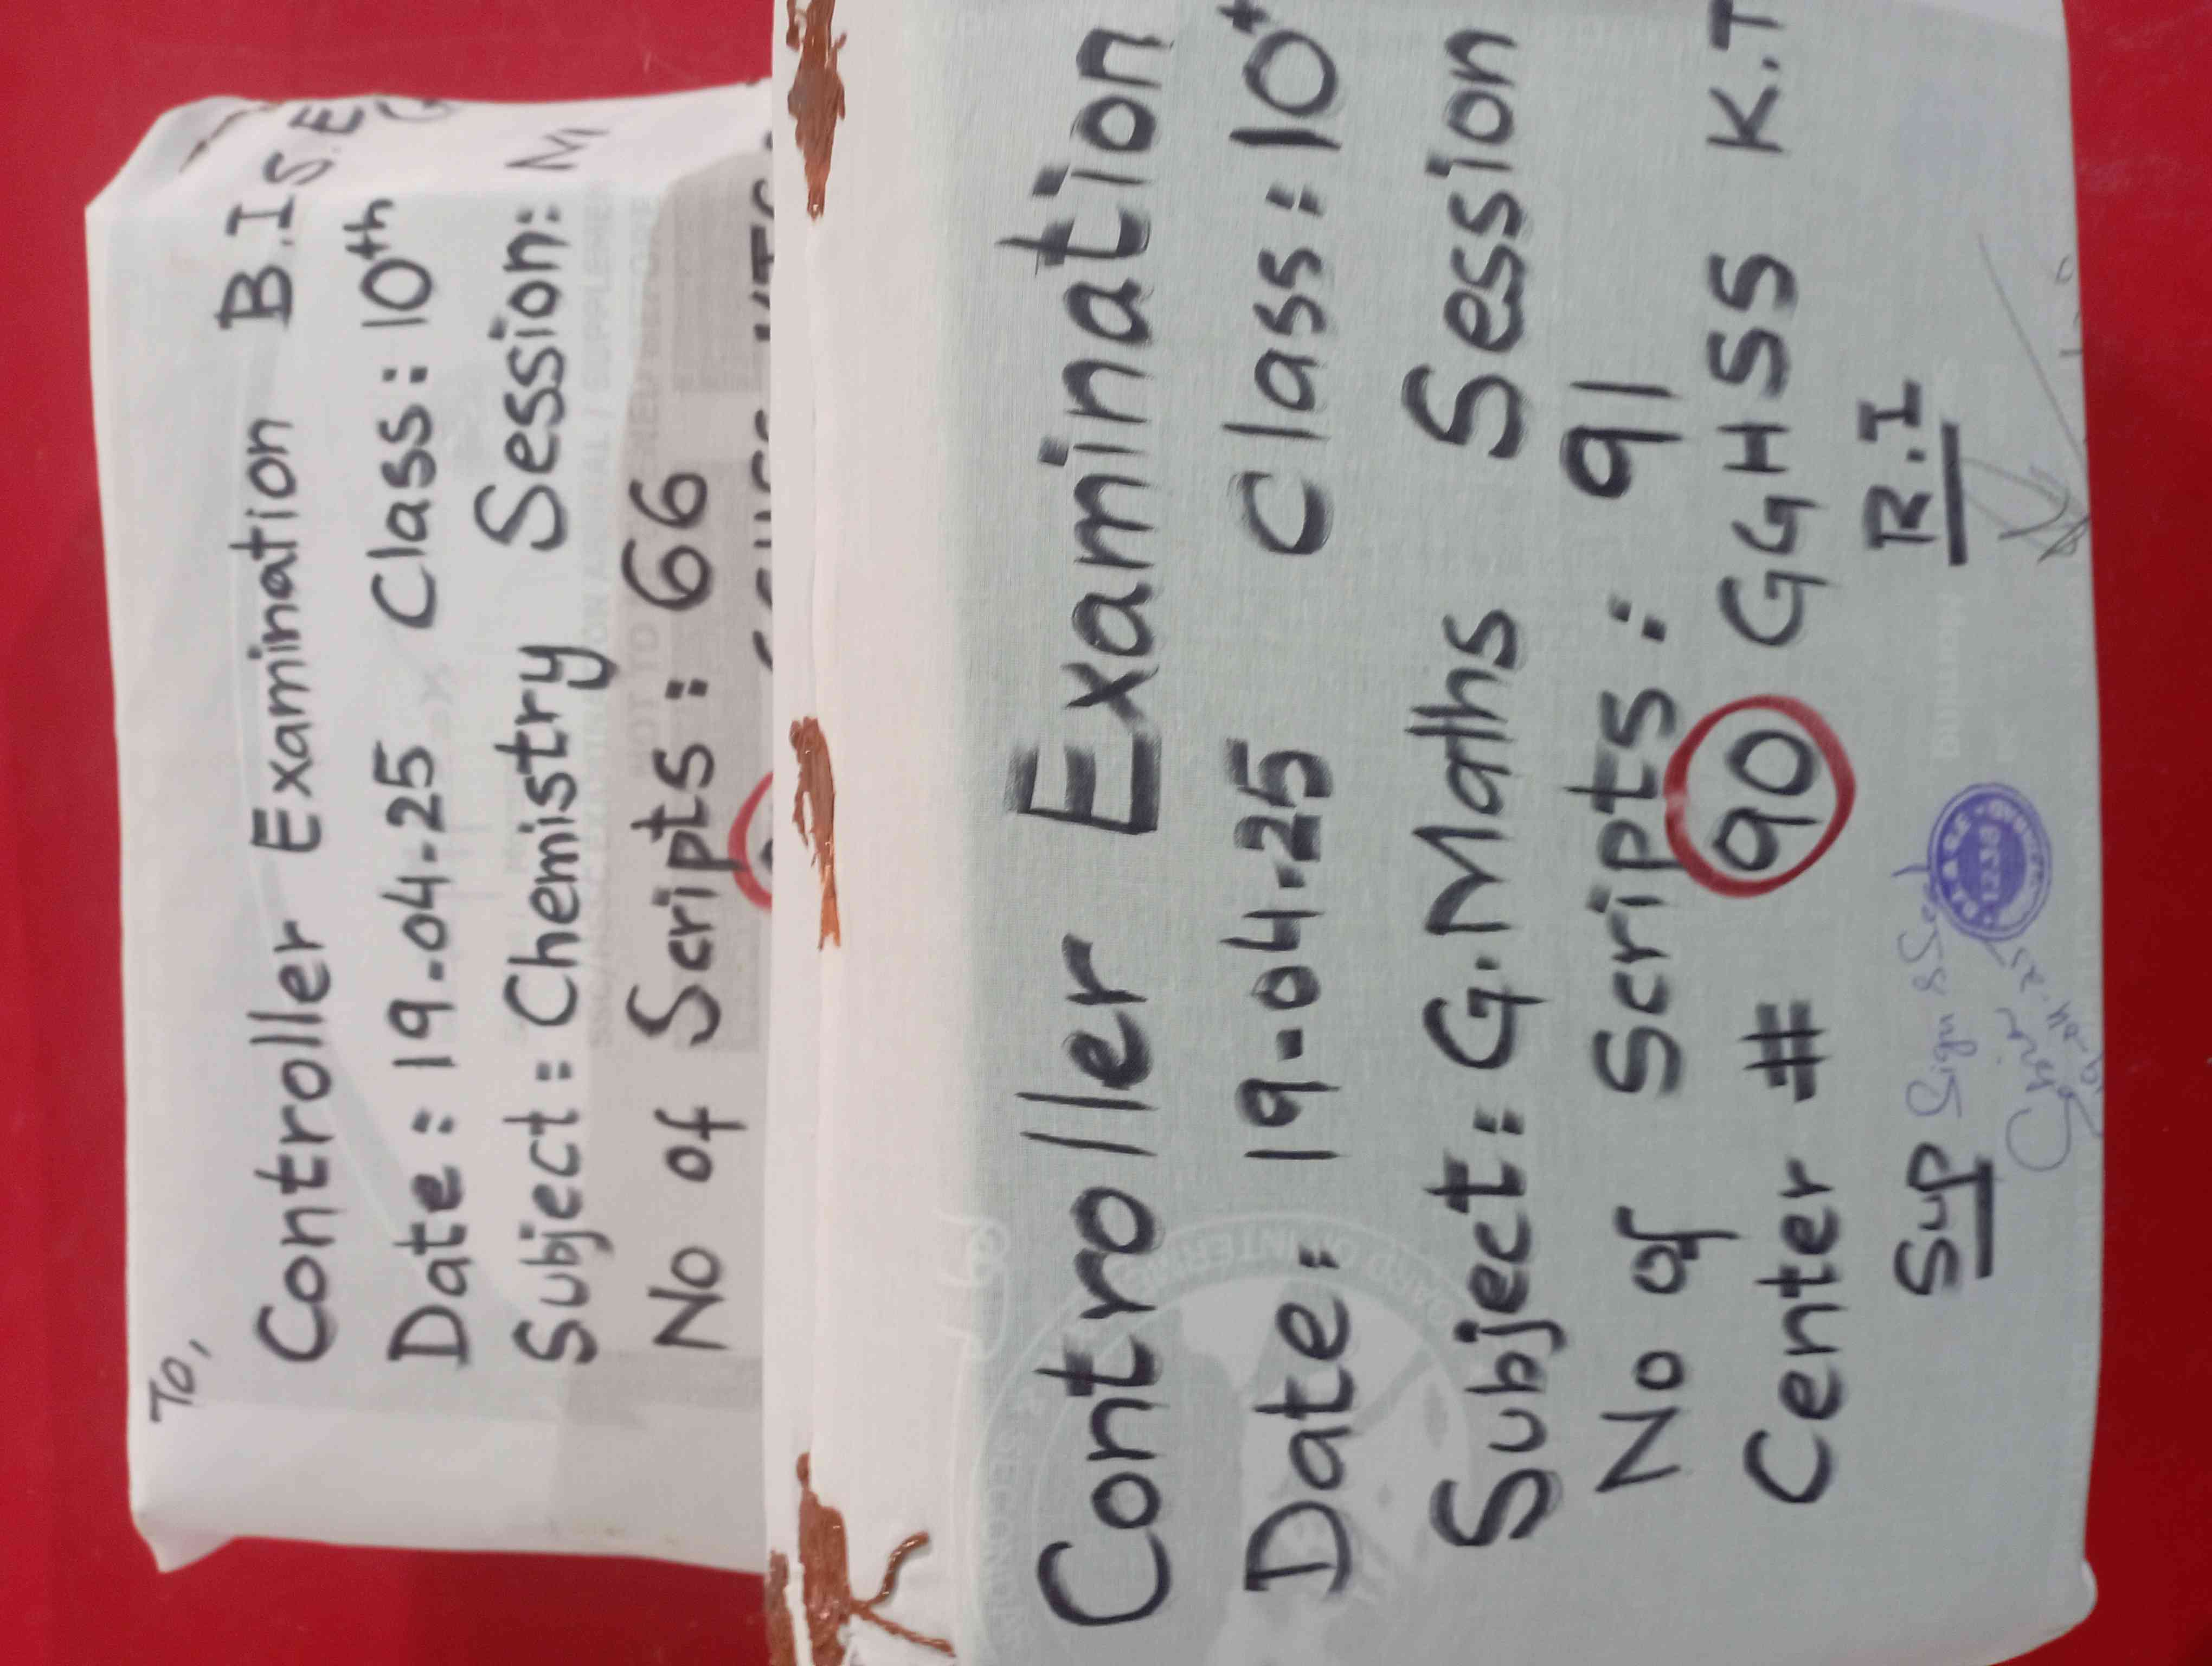 To,
Controller Examination B.I.S.E
Date: 19-04-25 Class: 10th
Subject: Chemistry Session: M
No of Scripts: 66
Controller Examination
Date: 19-04-25 Class: 10
Subject: G.Maths Session
No of Scripts: 91
Center # 90 GGHSS K.T
Sup R.I
Sign